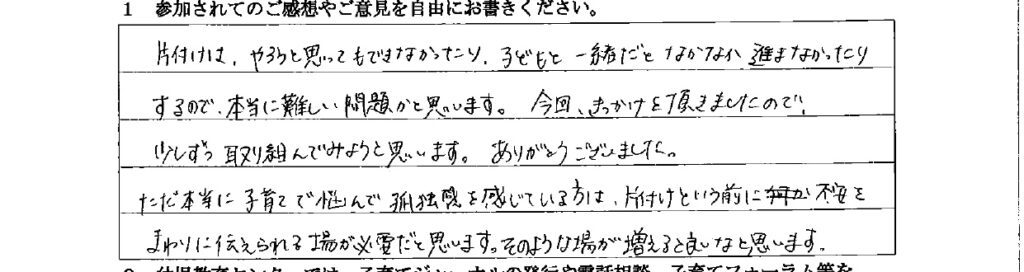 1 参加されてのご感想やご意見を自由にお書きください。
片付けは、やろうと思ってもできなかったり、子どもと一緒だとなかなか進まなかったり
するので、本当に難しい問題かと思います。 今回、きっかけを頂きましたので、
少しずつ取り組んでみようと思います。 ありがとうございました。
ただ本当に子育てで悩んで孤独感を感じている方は、片付けという前に不安を
まわりに伝えられる場が必要だと思います。そのような場が増えると良いなと思います。